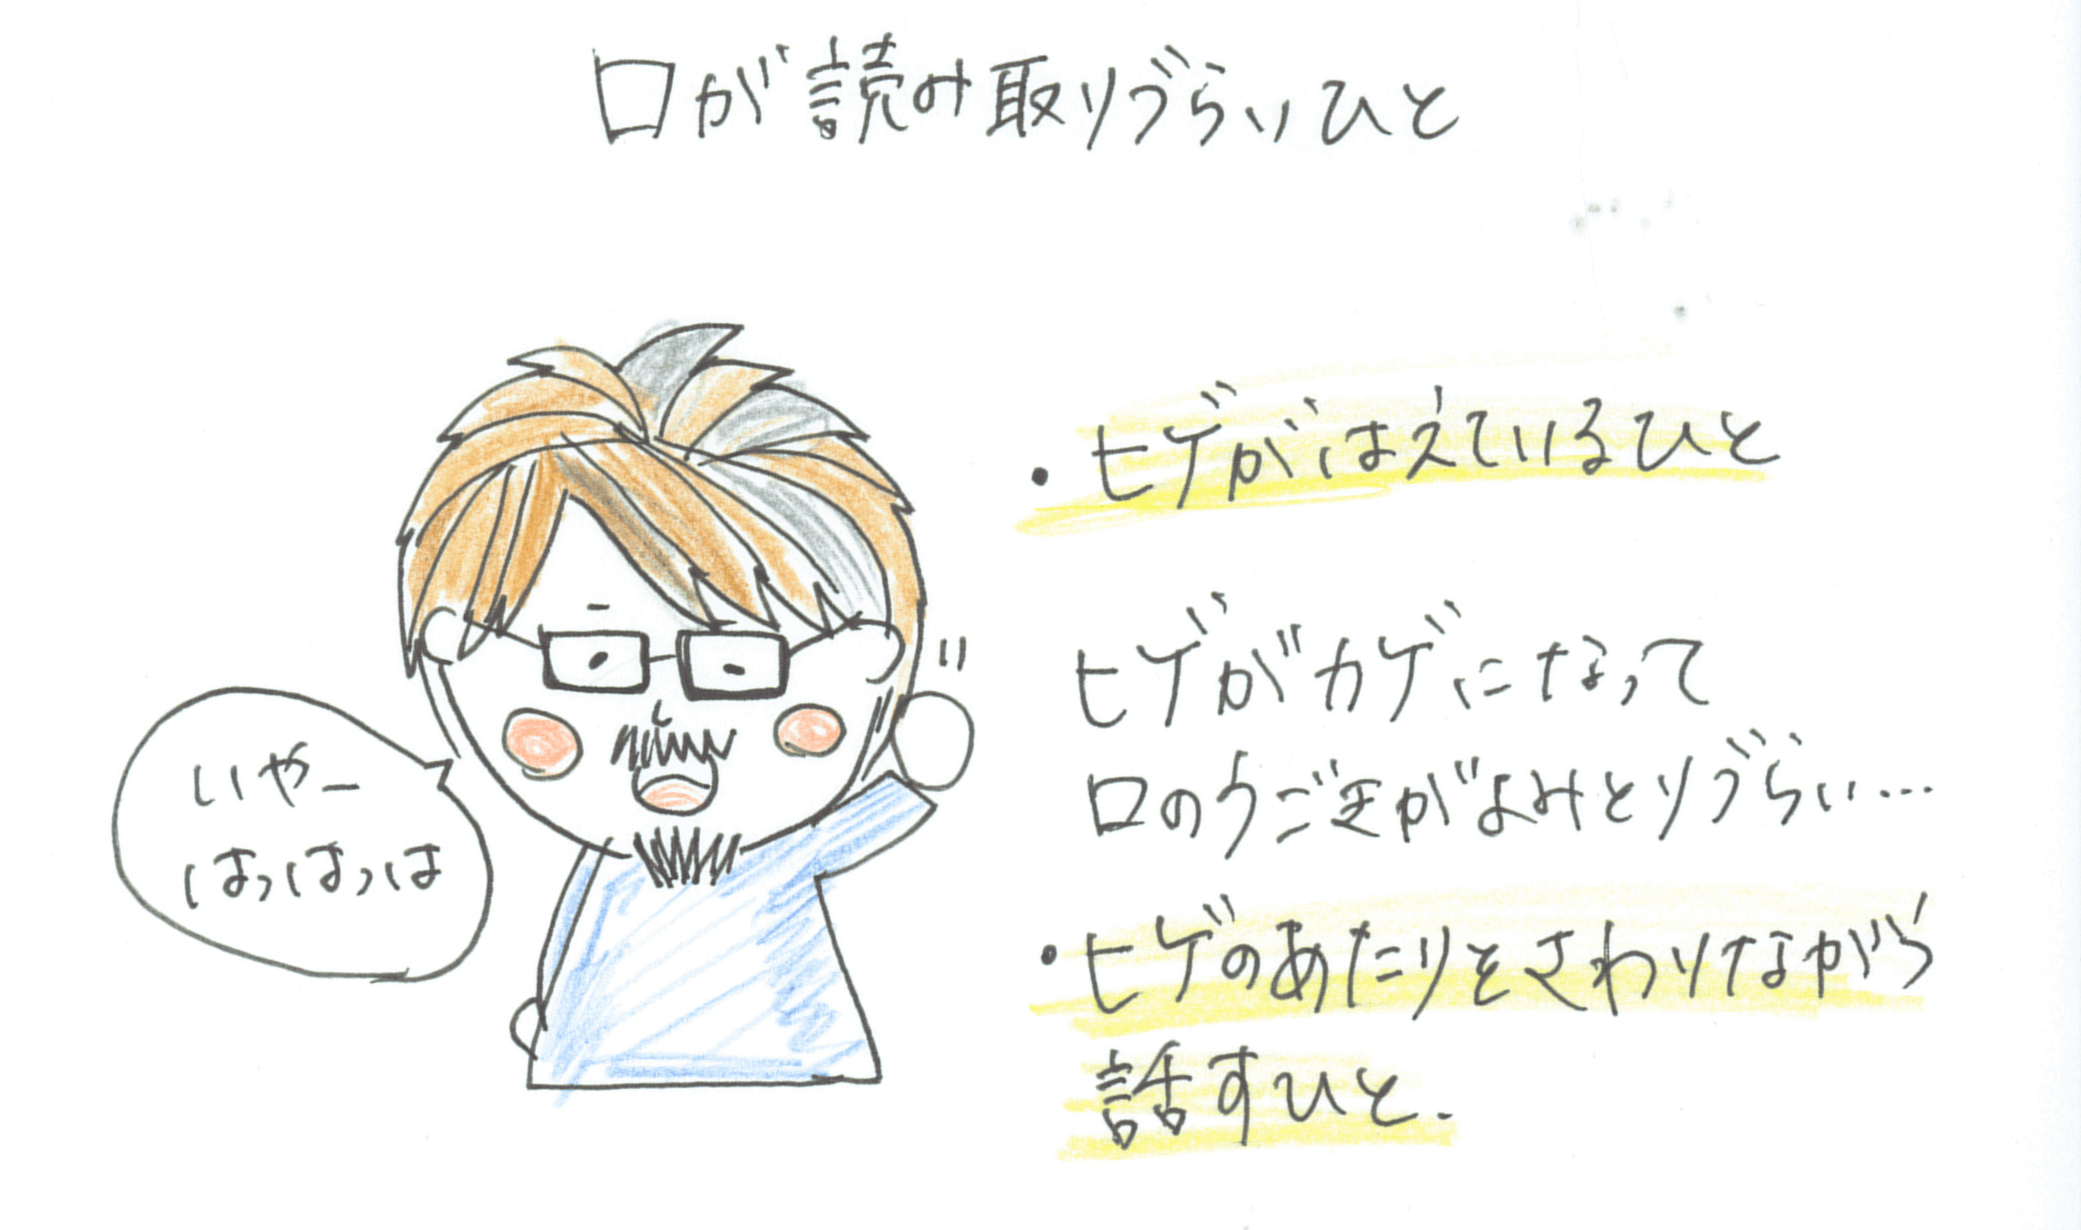 口が読み取りづらいひと
・ヒゲがはえているひと
ヒゲがカゲになって
口のうごきがよみとりづらい…
・ヒゲのあたりをさわりながら
話すひと.
いやー
はっはっは